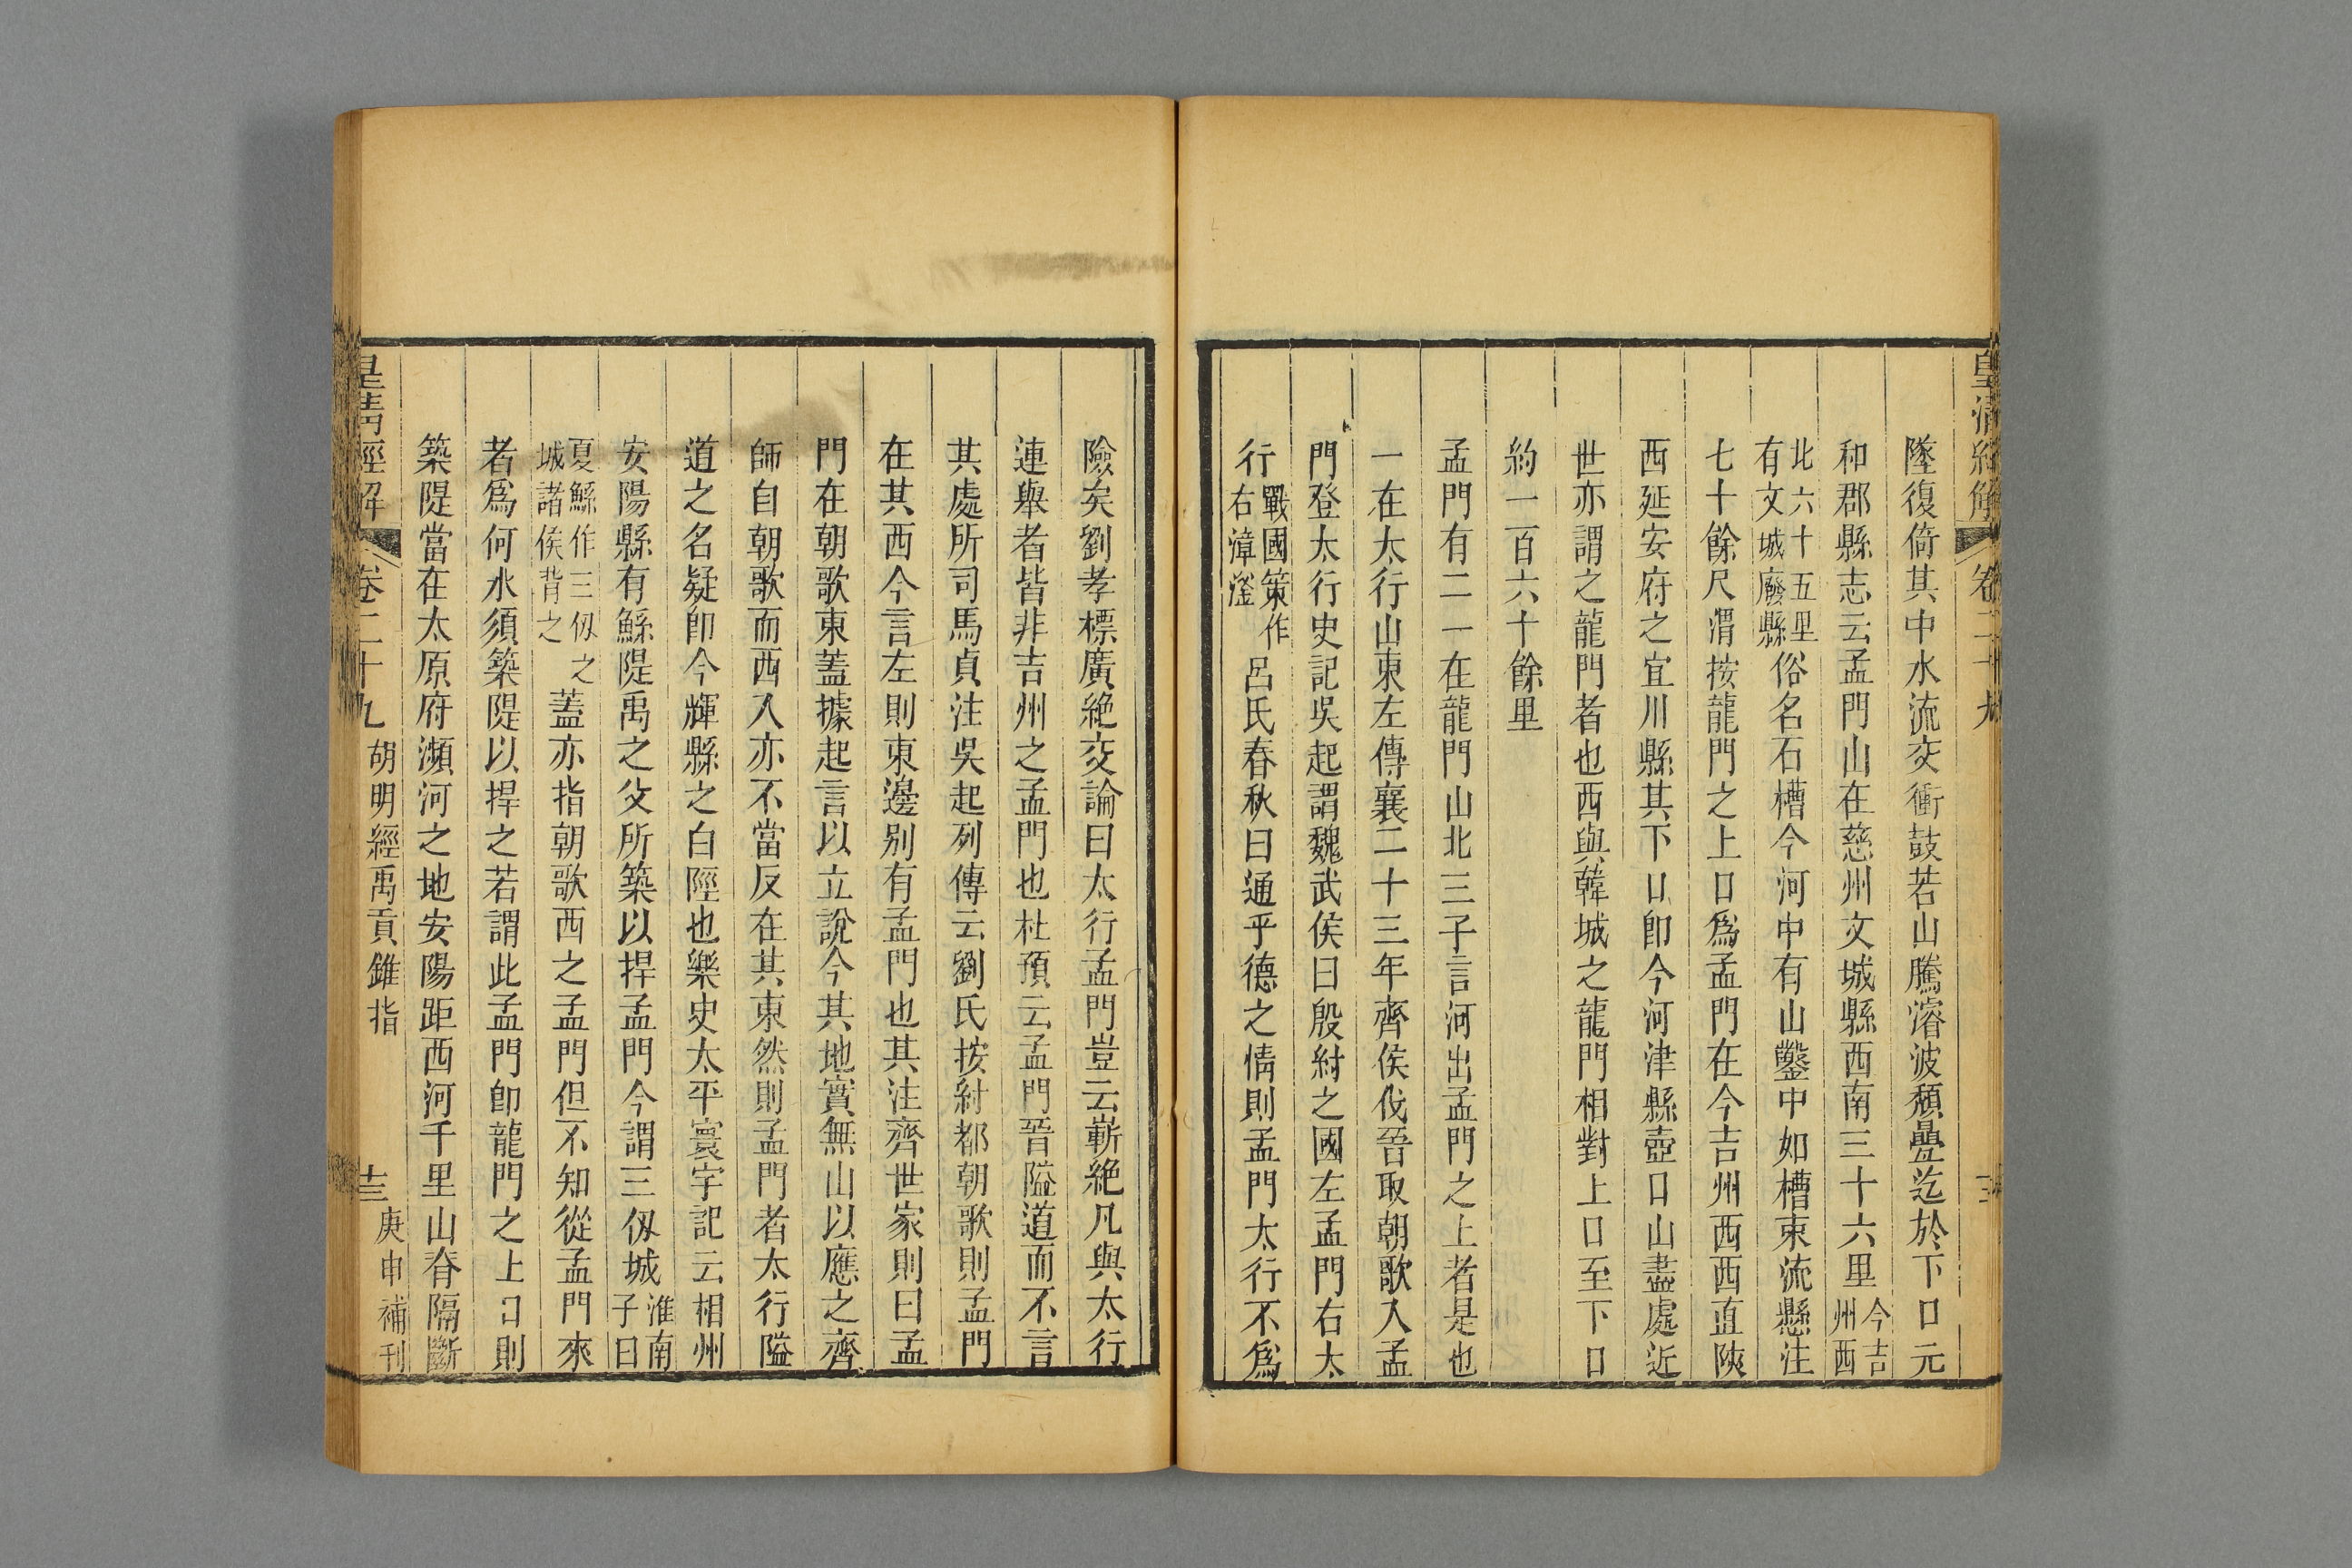 皇清經解 卷二十九
墜復倚其中水流交衝鼓若山騰濬波頹疊迄於下口元
和郡縣志云孟門山在慈州文城縣西南三十六里今吉州西
北六十五里有文城廢縣俗名石槽今河中有山鑿中如槽束流懸注
七十餘尺渭按龍門之上口爲孟門在今吉州西西直陝
西延安府之宜川縣其下口卽今河津縣壺口山盡處近
世亦謂之龍門者也西與韓城之龍門相對上口至下口
約一百六十餘里
孟門有二一在龍門山北三子言河出孟門之上者是也
一在太行山東左傳襄二十三年齊侯伐晉取朝歌入孟
門登太行史記吳起謂魏武侯曰殷紂之國左孟門右太
行戰國策作右漳滏呂氏春秋曰通乎德之情則孟門太行不爲
險矣劉孝標廣絶交論曰太行孟門豈云嶄絶凡與太行
連舉者皆非吉州之孟門也杜預云孟門晉隘道而不言
其處所司馬貞注吳起列傳云劉氏按紂都朝歌則孟門
在其西今言左則東邊别有孟門也其注齊世家則曰孟
門在朝歌東蓋據起言以立說今其地實無山以應之齊
師自朝歌而西入亦不當反在其東然則孟門者太行隘
道之名疑卽今輝縣之白陘也樂史太平寰宇記云相州
安陽縣有鯀隄禹之父所築以捍孟門今謂三仭城淮南子曰
夏鯀作三仭之城諸侯背之蓋亦指朝歌西之孟門但不知從孟門來
者爲何水須築隄以捍之若謂此孟門卽龍門之上口則
築隄當在太原府瀕河之地安陽距西河千里山脊隔斷
皇清經解 卷二十九 胡明經禹貢錐指 十三 庚申補刊